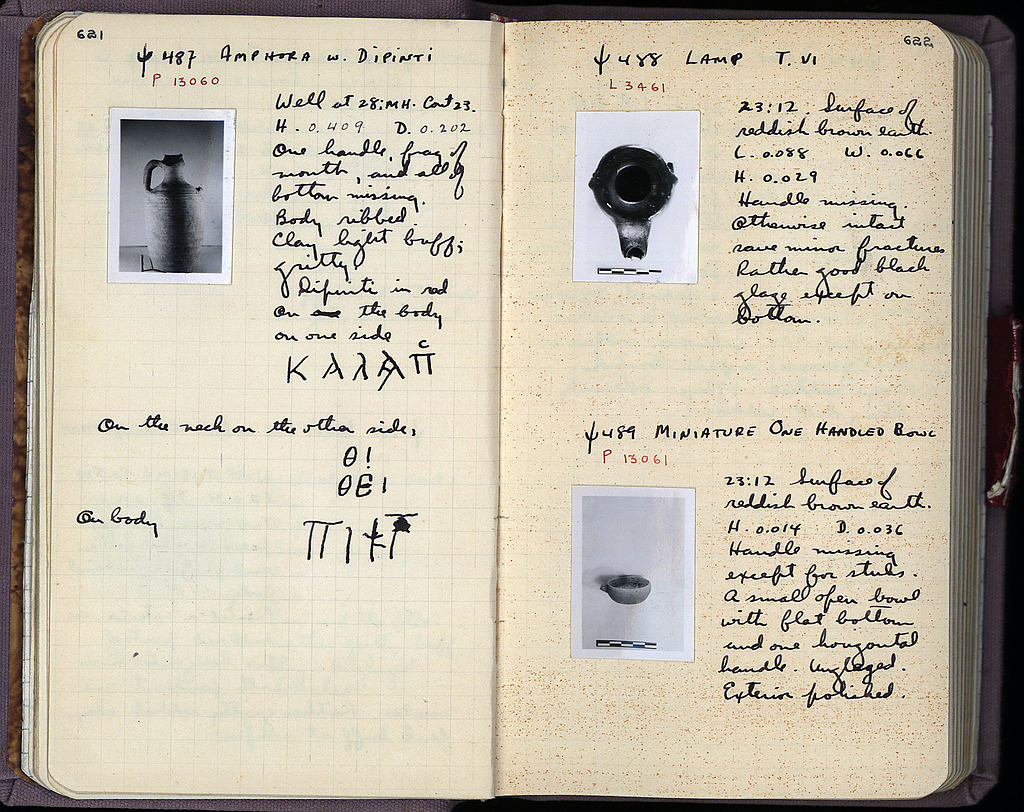 621
ψ 487 AMPHORA W. DIPINTI
P 13060
Well at 28:MH. Cont 23.
H. 0.409 D. 0.202
One handle, frag of
mouth, and all of
bottom missing.
Body ribbed
Clay light buff;
gritty
Dipinti in red
on the body
on one side
On the neck on the other side,
θ!
θE!
On body
622
ψ 488 LAMP T. VI
L 3461
23:12 Surface of
reddish brown earth.
L. 0.088 W. 0.066
H. 0.029
Handle missing.
Otherwise intact
save minor fractures
Rather good black
glaze except on
bottom.
ψ 489 MINIATURE ONE HANDLED BOWL
P 13061
23:12 Surface of
reddish brown earth.
H. 0.014 D. 0.036
Handle missing
except for stubs.
A small open bowl
with flat bottom
and one horizontal
handle. Unglazed.
Exterior polished.